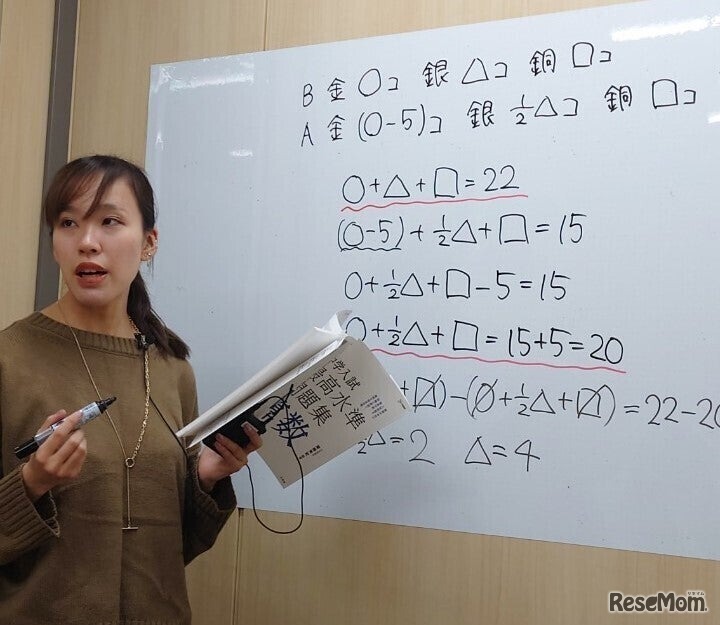 B 金 ○コ 銀 △コ 銅 □コ
A 金 (○-5)コ 銀 1/2△コ 銅 □コ
○+△+□=22
(○-5)+1/2△+□=15
○+1/2△+□-5=15
○+1/2△+□=15+5=20
+□)-(○+1/2△+□)=22-20
1/2△=2 △=4
学入試
最高水準
問題集
算数
ReseMom
リセマム